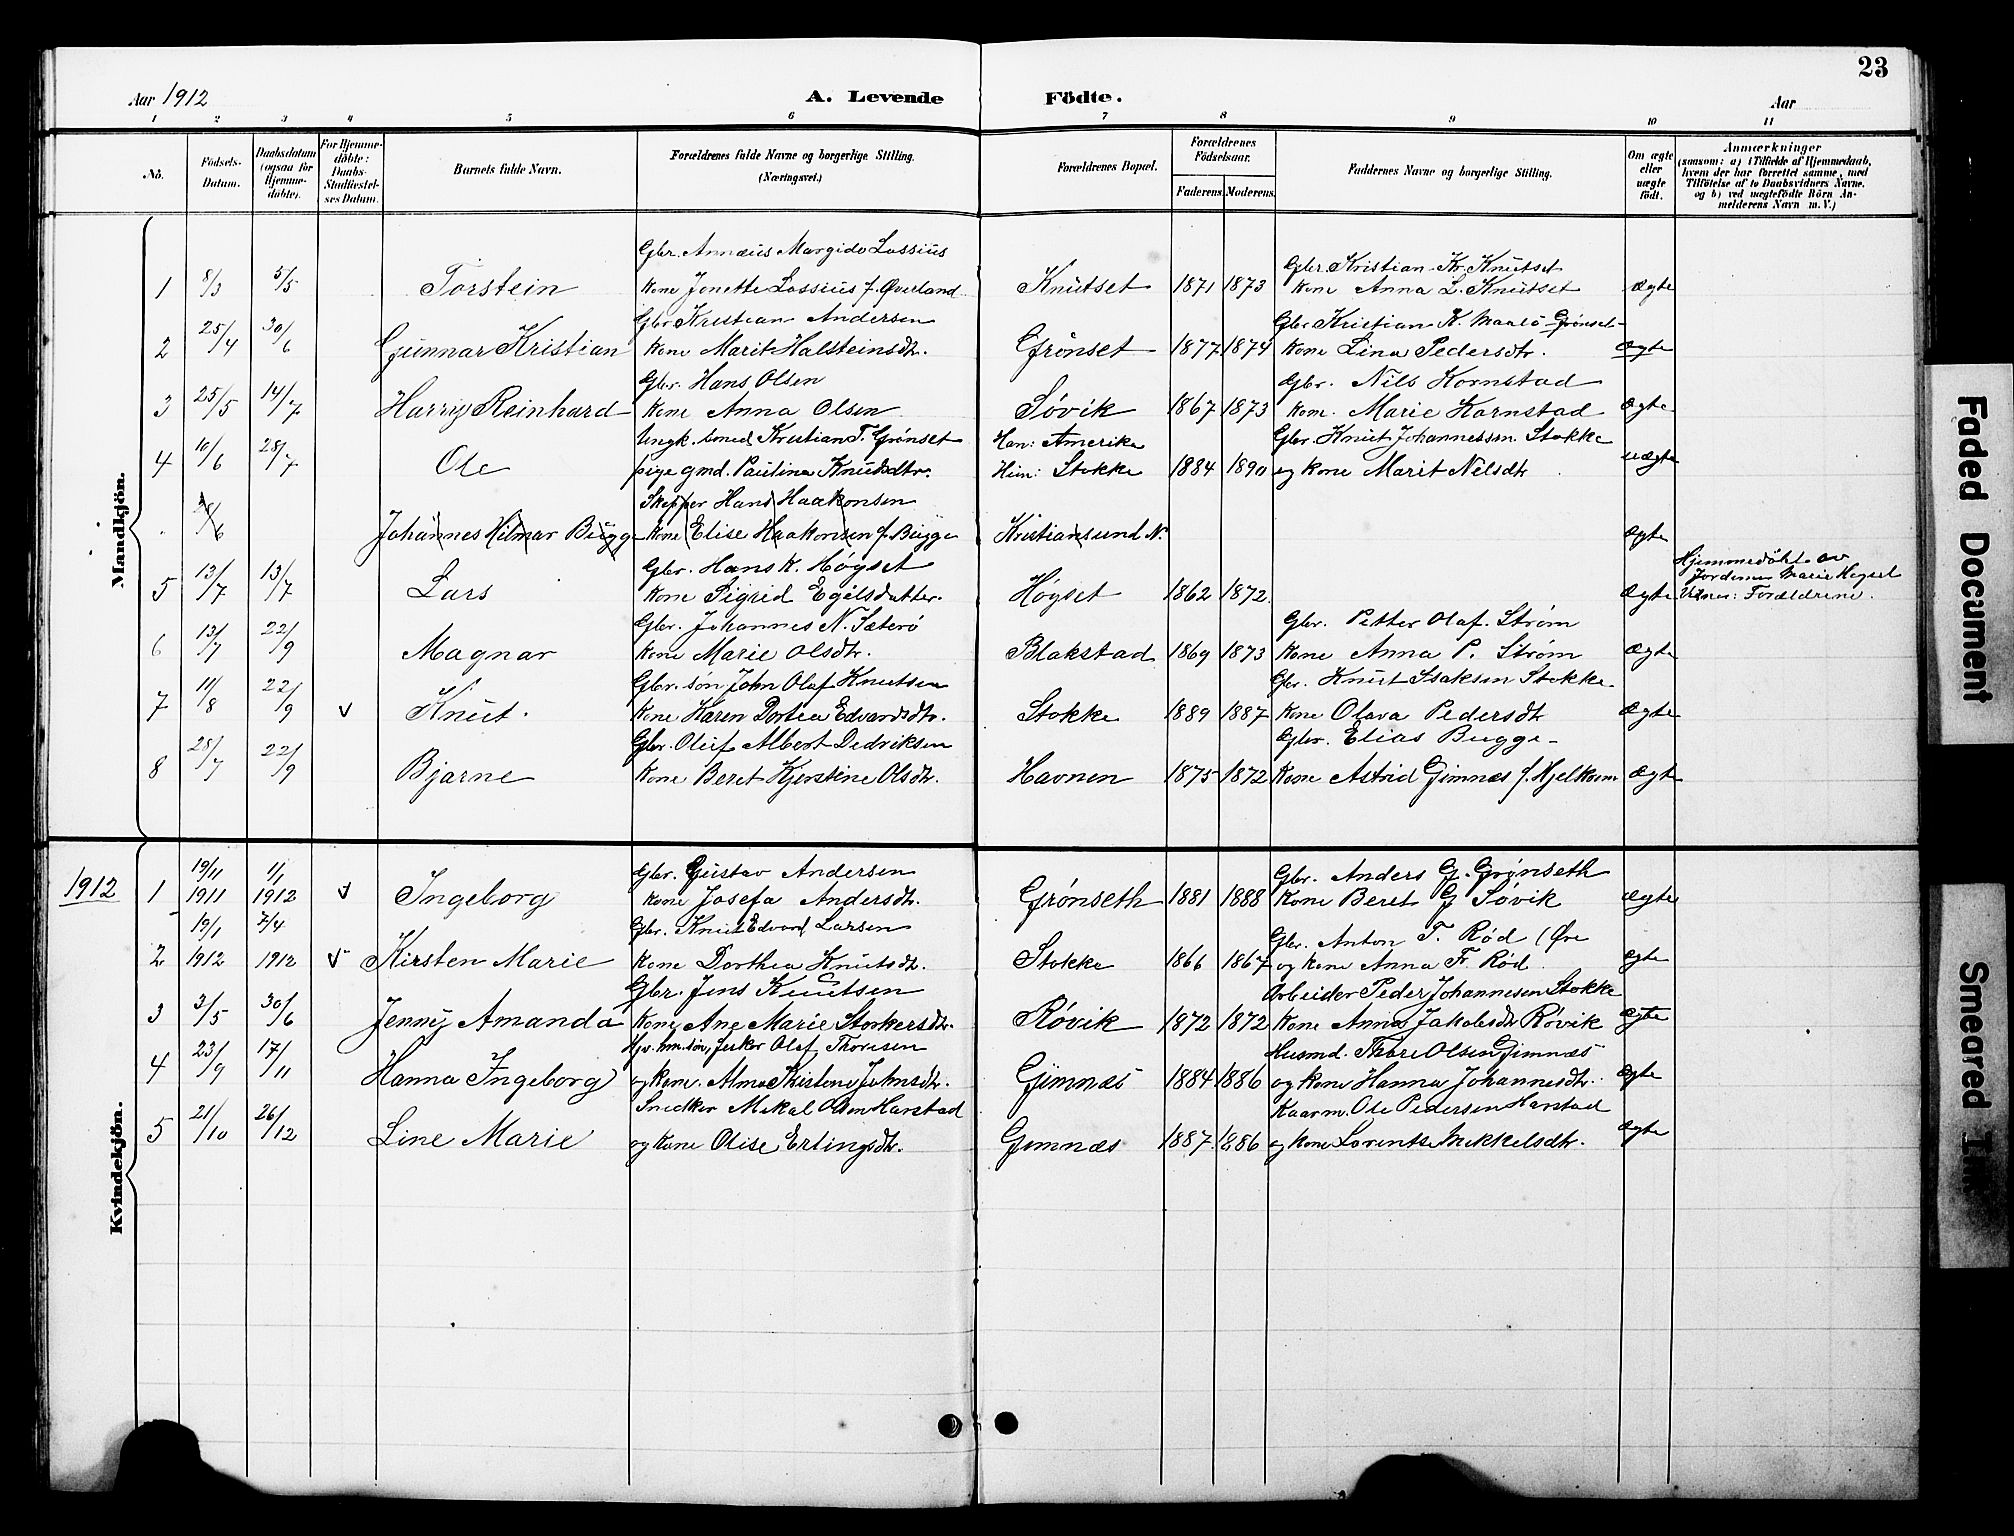 23
Aar 1912 A. Levende Födte. Aar
1 2 3 4 5 6 7 8 9 10 11
No. Födsels-Datum. Daabsdatum (ogsaa for Hjemme-döbte). For Hjemme-döbte: Daabs-Stadfæstel-ses Datum. Barnets fulde Navn. Forældrenes fulde Navne og borgerlige Stilling. (Næringsvei.) Forældrenes Bopæl. Forældrenes Födselsaar. Faderens. Moderens. Faddernes Navne og borgerlige Stilling. Om ægte eller uægte födt. Anmærkninger (saasom: a) i Tilfælde af Hjemmedaab, hvem der har forrettet samme, med Tilföielse af to Daabsvidners Navne, og b) ved uægtefödte Börn An-melderens Navn m. V.)
Mandkjön.
Gbr. Annæus Margido Lossius Gbr. Kristian Kr. Knutset
1 8/3 5/5 Torstein Kone Jonette Lossius f. Øverland Knutset 1871 1873 Kone Anna L. Knutset Ægte
Gbr Kristian Andersen Gbr Kristian K. Maalö Grönset
2 25/4 30/6 Gunnar Kristian Kone Marit Halsteinsdtr. Grönset 1877 1874 Kone Lina Pedersdtr. Ægte
Gbr. Hans Olsen Gbr. Nils Kornstad
3 25/5 14/7 Harry Reinhard Kone Anna Olsen Sövik 1867 1873 Kone Marie Kornstad Ægte
Ungk. Kristian T. Grönset Han: Amerika Gbr. Knut Johannessen Stokke
4 10/6 28/7 Ole pige gmd. Paulina Knutsdtr. Hun: Stokke 1884 1890 og kone Marit Nilsdtr uægte
Skipper Hans Haakonsen
Johannes Hilmar Bugge Kone Elise Haakonsen f. Bugge Kristiansund N. Ægte
Gbr. Hans K. Høgset Hjemmedöbt av
5 13/7 13/7 Lars Kone Sigrid Egilsdatter. Høgset 1862 1872 Ægte Jordemor Marie Høgset
Vidner: Forældrene.
Gbr. Johannes N. Sæterö Gbr. Petter Olaf Strøm
6 13/7 22/9 Magnar Kone Marie Olsdtr. Blakstad 1869 1873 Kone Anna P. Strøm Ægte
Gbr. sön John Olaf Knutsen Gbr. Knut Isaksen Stokke
7 11/8 22/9 v Knut. Kone Karen Dortea Edvardsdtr. Stokke 1889 1887 Kone Olava Pedersdtr Ægte
Gbr. Oluf Albert Dedriksen Gbr. Elias Bugge
8 28/7 22/9 Bjarne Kone Beret Kjerstine Olsdtr. Havnen 1875 1872 Kone Astrid Gimnæs f. Hjelkrem Ægte
Kvindekjön.
19/11 1/1 Gbr. Gustav Andersen Gbr. Anders G. Grønseth
1912 1 1911 1912 v Ingeborg Kone Josefa Andersdtr. Grønseth 1881 1888 Kone Beret G Søvik Ægte
19/1 7/4 Gbr. Knut Edvard Larsen Gbr. Anton T. Rød (Øre
2 1912 1912 v Kirsten Marie Kone Dorthea Knutsdtr. Stokke 1866 1867 og kone Anna F. Rød Ægte
Gbr. Jens Knutsen Arbeider Peder Johannesen Stokke
3 3/5 30/6 Jenny Amanda Kone Ane Marie Storkersdtr. Rövik 1872 1872 Kone Anna Jakobsdtr Rövik Ægte
Olaf Thoresen Husmd. Thore Olsen Gimnæs
4 23/9 17/11 Hanna Ingeborg og kone Alma Kristene Johnsdtr. Gimnæs 1884 1886 og kone Hanna Johannesdtr. Ægte
Snedker Mikal Olsen Harstad Kaarm. Ole Pedersen Harstad
5 21/10 26/12 Line Marie og kone Olise Erlingsdtr. Gimnæs 1887 1886 og kone Lorentse Mikkelsdtr. Ægte
Faded Document
Smeared Ink